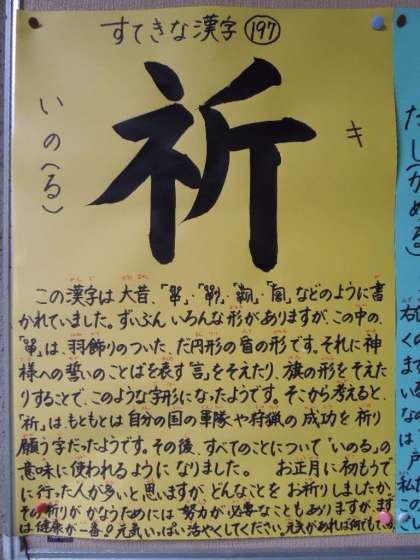 すてきな漢字 197
祈
いの(る)
キ
この漢字は大昔、
などのように書
かれていました。ずいぶんいろんな形がありますが、この中の、
は、羽飾りのついた、だ円形の盾の形です。それに神
様への誓いのことばを表す「言」をそえたり、旗の形をそえた
りすることで、このような字形になったようです。そこから考えると、
「祈」は、もともとは自分の国の軍隊や狩猟の成功を祈り
願う字だったようです。その後、すべてのことについて「いのる」の
意味に使われるようになりました。 お正月に初もうで
に行った人が多いと思いますが、どんなことをお祈りしましたか。
その祈りがかなうためには努力が必要なこともありますが、まず
は健康が一番!元気いっぱい活やくしてください。元気があれば何でもいい